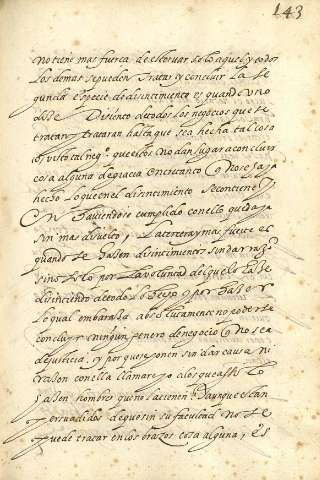 143
no tiene mas fuerça de estoruar solo aquel y todos
los demas se pueden tratar y concluir la se
gunda especie de disintimiento es quando uno
dize Disiento de todos los negocios que se
tratan y trataran hasta que sea hecha tal cosa
o, visto tal neg.º que estos no dan lugar a concluir
cosa alguna de gracia en contrario y no se
hecho lo que en el disintimiento se contiene
haviendose cumplido con ello queda
sin mas disuelto, la tercera y mas fuerte es
quando se hacen disintimientos sin dar razo
sino solo por la voluntad del que lo haze
disintiendo de todo lo hecho y por hazer
lo qual embaraza absolutamente no poderse
concluir ningun genero de negocio que no sea
de justicia, y por que se ponen sin dar causa ni
razon con ella llamare a los que assi lo
hazen hombres que no la tienen aunque estan
persuadidos de que sin su facultad no se
puede tratar en los brazos cosa alguna, es